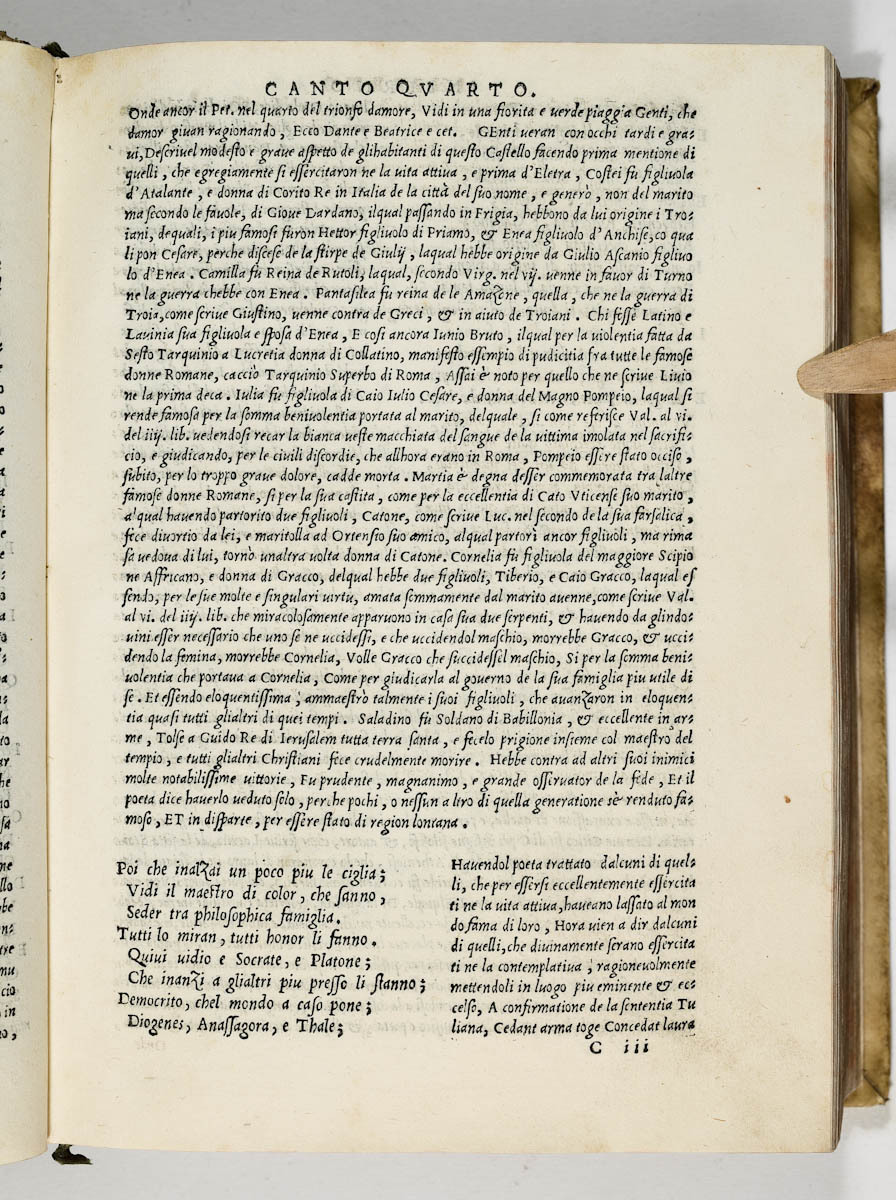 CANTO QVARTO.
Onde ancor il Pet. nel quarto del trionfo damore, Vidi in una fiorita e verde piaggia Genti, che
damor giuan ragionando, Ecco Dante e Beatrice e cet. GEnti ueran con occhi tardi e gra-
ui, Descriuel modesto e graue aspetto de glihabitanti di questo Castello facendo prima mentione di
quelli, che egregiamente si essercitaron ne la uita attiua, e prima d'Eletra, Costei fu figliuola
d'Atalante, e donna di Corito Re in Italia de la città del suo nome, e generò, non del marito
ma secondo le fauole, di Gioue Dardano, ilqual passando in Frigia, hebbono da lui origine i Tro-
iani, de quali, i piu famosi furon Hettor figliuolo di Priamo, & Enea figliuolo d'Anchise, co qua
li pon Cesare, perche discese de la stirpe de Giulij, laqual hebbe origine da Giulio Ascanio figliuo
lo d'Enea. Camilla fù Reina de Rutoli, laqual, secondo Virg. nel vij. uenne in fauor di Turno
ne la guerra chebbe con Enea. Pantasilea fu reina de le Amazone, quella, che ne la guerra di
Troia, come scriue Giustino, uenne contra de Greci, & in aiuto de Troiani. Chi fesse Latino e
Lauinia sua figliuola e sposa d'Enea, E cosi ancora Iunio Bruto, ilqual per la uiolentia fatta da
Sesto Tarquinio a Lucretia donna di Collatino, manifesto essempio di pudicitia fra tutte le famose
donne Romane, cacciò Tarquinio Superbo di Roma, Assai è noto per quello che ne scriue Liuio
ne la prima deca. Iulia fù figliuola di Caio Iulio Cesare, e donna del Magno Pompeio, laqual si
rende famosa per la somma beniuolentia portata al marito, delquale, si come referisce Val. al vi.
del iiij. lib. uedendosi recar la bianca ueste macchiata del sangue de la uittima imolata nel sacrifi-
cio, e giudicando, per le ciuili discordie, che allhora erano in Roma, Pompeio essere stato occiso,
subito, per lo troppo graue dolore, cadde morta. Martia è degna desser commemorata tra laltre
famose donne Romane, si per la sua castita, come per la eccellentia di Cato Vticense suo marito,
al qual hauendo partorito due figliuoli, Catone, come scriue Luc. nel secondo de la sua farsalica,
fece diuortio da lei, e maritolla ad Ortensio suo amico, alqual partorì ancor figliuoli, ma rima
sa uedoua di lui, tornò unaltra uolta donna di Catone. Cornelia fù figliuola del maggiore Scipio
ne Affricano, e donna di Gracco, delqual hebbe due figliuoli, Tiberio, e Caio Gracco, laqual es
sendo, per le sue molte e singulari uirtu, amata sommamente dal marito auenne, come scriue Val.
al vi. del iiij. lib. che miracolosamente apparuono in casa sua due serpenti, & hauendo da glindo-
uini esser necessario che uno se ne uccidessi, e che uccidendol maschio, morrebbe Gracco, & ucci-
dendo la femina, morrebbe Cornelia, Volle Gracco che succidessel maschio, Si per la somma beni-
uolentia che portaua a Cornelia, Come per giudicarla al gouerno de la sua famiglia piu utile di
se. Et essendo eloquentissima, ammaestrò talmente i suoi figliuoli, che auanzaron in eloquen-
tia quasi tutti glialtri di quei tempi. Saladino fù Soldano di Babillonia, & eccellente in ar-
me, Tolse a Guido Re di Ierusalem tutta terra santa, e fecelo prigione insieme col maestro del
tempio, e tutti glialtri Christiani fece crudelmente morire. Hebbe contra ad altri suoi inimici
molte notabilissime uittorie, Fu prudente, magnanimo, e grande osseruator de la fede, Et il
poeta dice hauerlo ueduto solo, perche pochi, o nessun altro di quella generatione sè renduto fa-
moso, ET in disparte, per essere stato di region lontana.
Poi che inalzai un poco piu le ciglia;
Vidi il maestro di color, che sanno,
Seder tra philosophica famiglia.
Tutti lo miran, tutti honor li fanno.
Quiui uidio e Socrate, e Platone;
Che inanzi a glialtri piu presso li stanno;
Democrito, chel mondo a caso pone;
Diogenes, Anassagora, e Thale;
Hauendol poeta trattato dalcuni di quel-
li, che per essersi eccellentemente essercita
ti ne la uita attiua, haueano lassato al mon
do fama di loro, Hora uien a dir dalcuni
di quelli, che diuinamente serano essercita
ti ne la contemplatiua, ragioneuolmente
mettendoli in luogo piu eminente & ec-
celso, A confirmatione de la sententia Tu
liana, Cedant arma toge Concedat laura
C iii